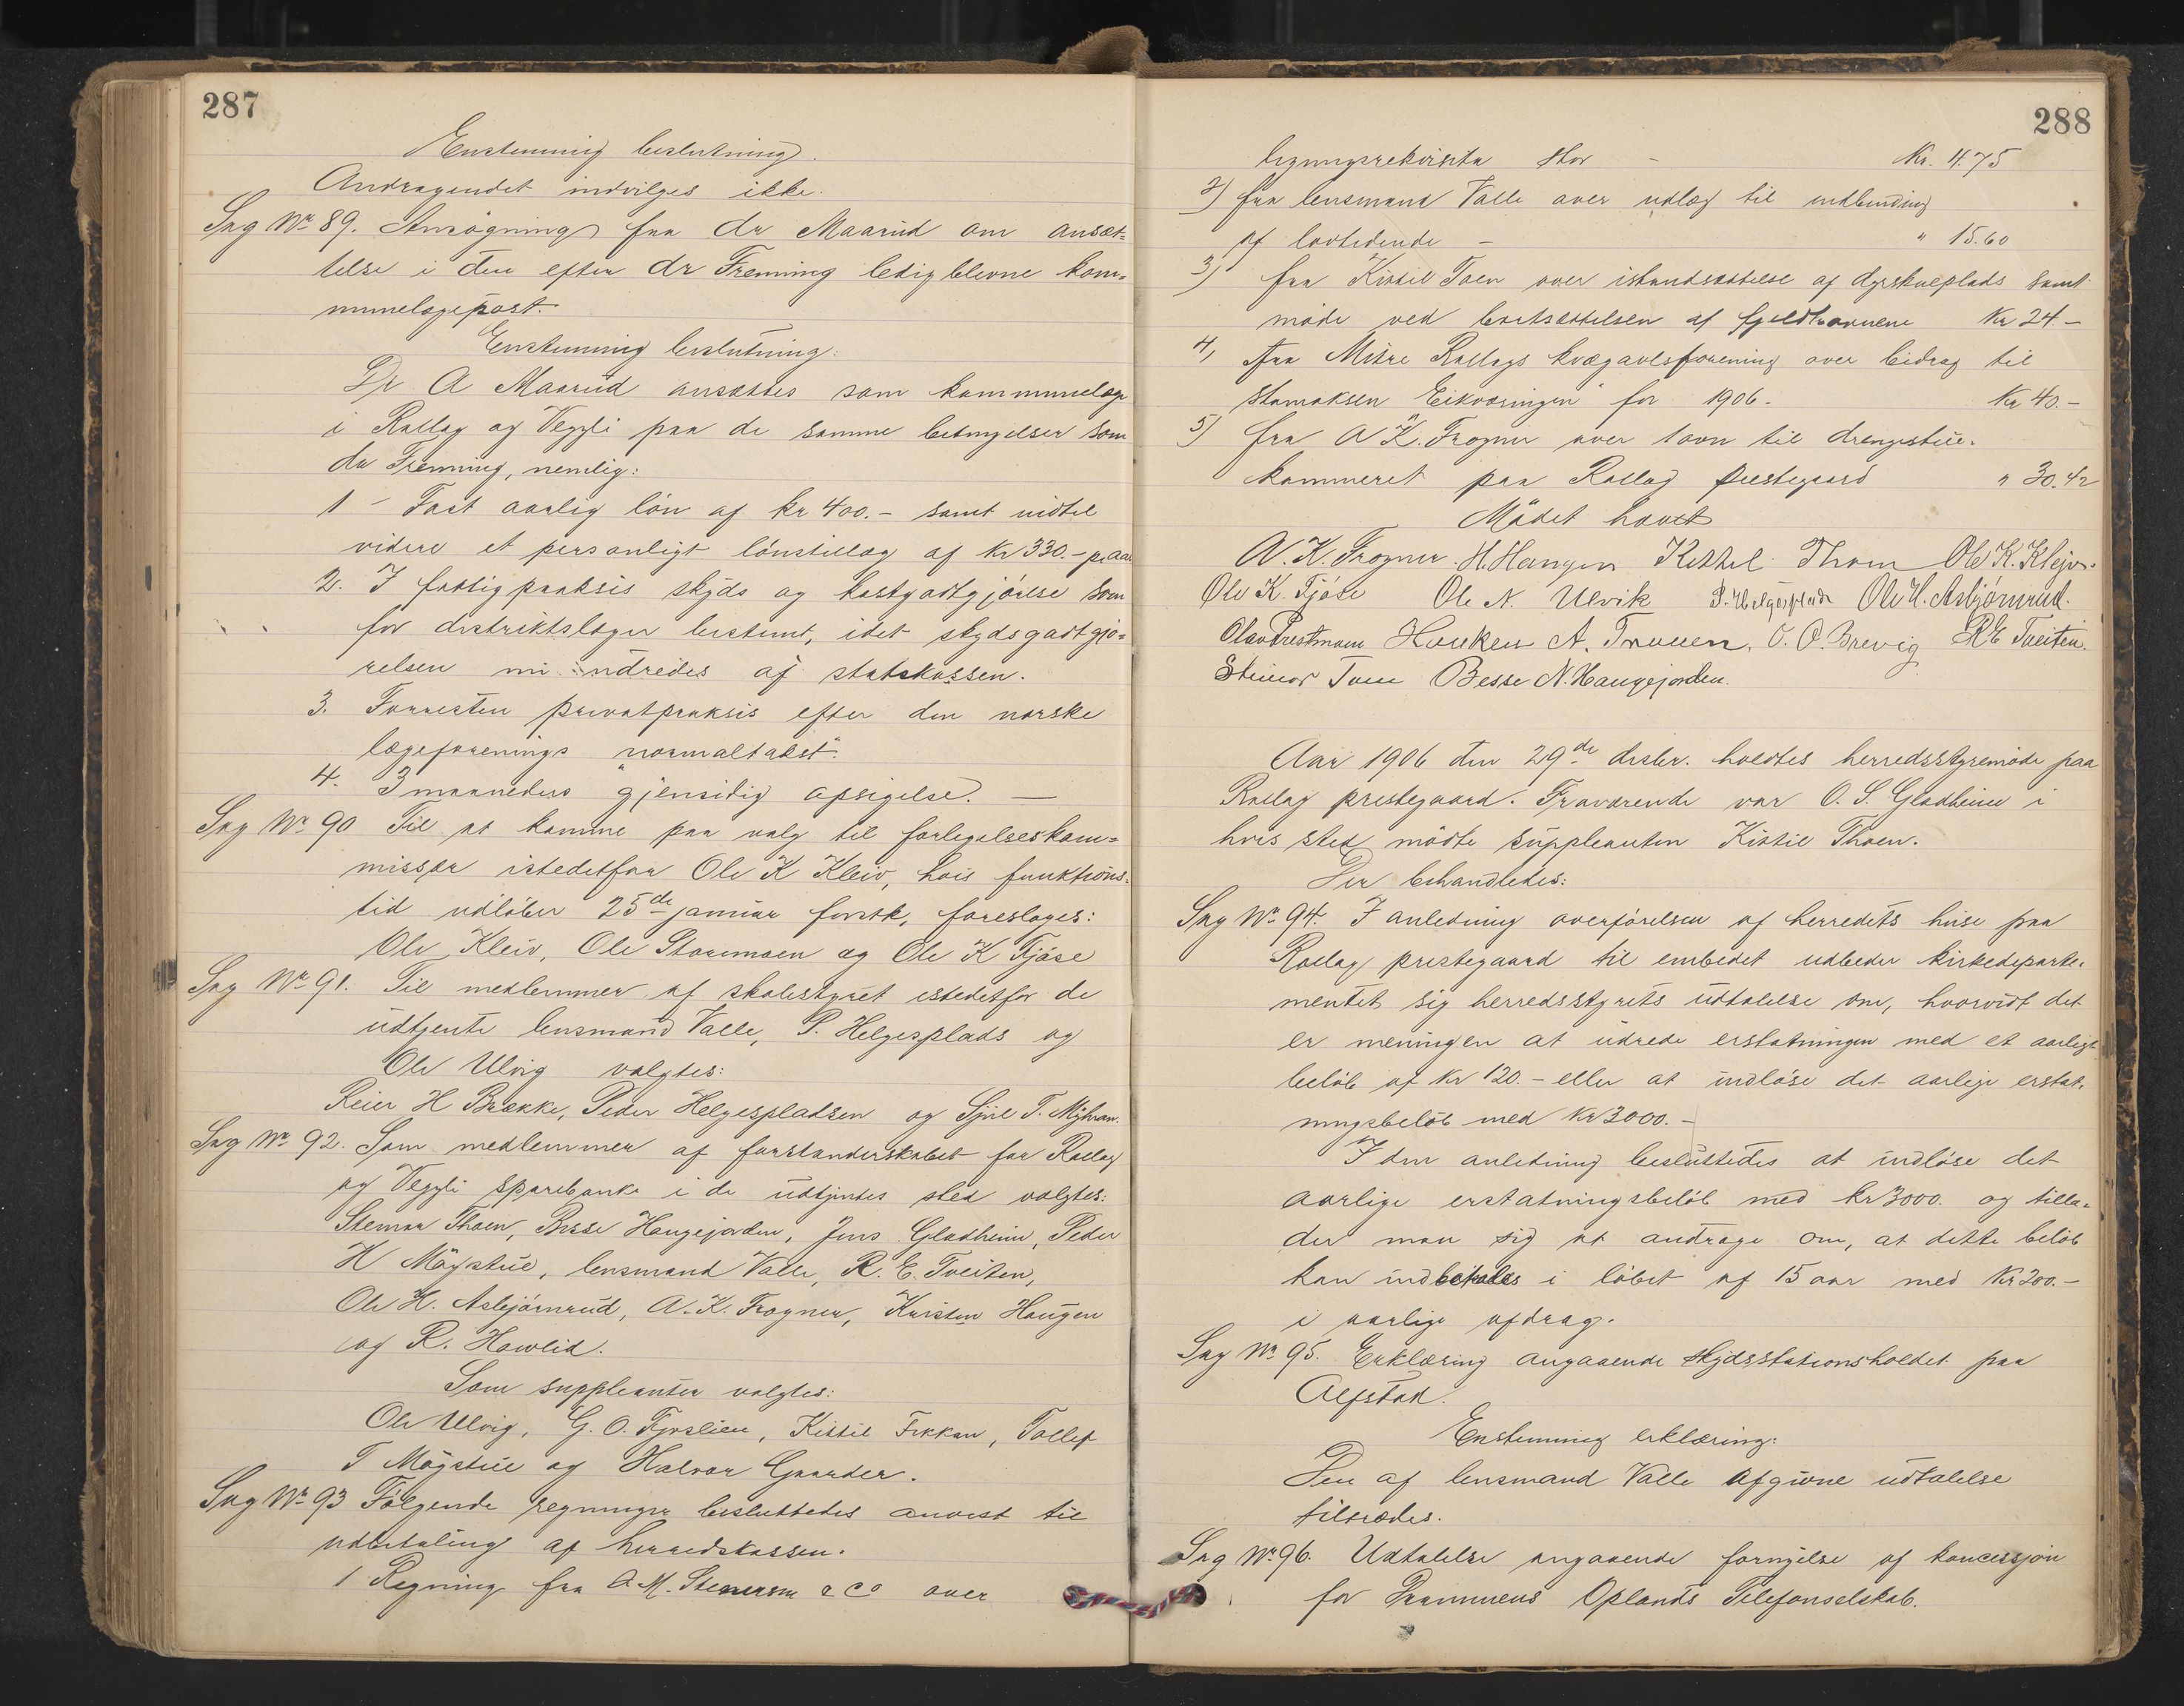 287
Enstemmig beslutning.
Andragendet indvilges ikke.
Sag Nr 89. Ansøgning fra dr Maarud om ansæt-
telse i den efter dr Frenning ledigblevne kom-
munelægepost.
Enstemmig beslutning:
Dr A Maarud ansættes som kommunelæge
i Rollag og Veggli paa de samme betingelser som
dr Frenning, nemlig:
1 - Fast aarlig løn af kr 400.- samt indtil
videre et personligt lønstillæg af Kr 330.- p. aar
2. I fattigpraksis skyds og kostgodtgjørelse som
for distriktslæger bestemt, idet skydsgodtgjø-
relsen udredes af statskassen.
3. Forresten privatpraksis efter den norske
lægeforenings "normaltakst".
4. 3 maaneders gjensidig opsigelse. —
Sag Nr 90 Til at komme paa valg til forligelseskom-
missær istedetfor Ole K Kleiv, hvis funktions-
tid udløber 25de januar førstk, foresloges:
Ole Kleiv, Ole Storemoen og Ole K Fjøse
Sag Nr 91. Til medlemmer af skolestyret istedetfor de
udtjente lensmand Valle, P. Helgesplads og
Ole Ulvig valgtes:
Reier H Brække, Peder Helgespladsen og T. Myhran.
Sag Nr 92. Som medlemmer af forstanderskabet for Rollag
og Veggli sparebank i de udtjentes sted valgtes:
Steinar Thoen, Besse Haugejorden, Jens Gladheim, Peder
H Møgstue, lensmand Valle, R. E. Tveiten,
Ole H. Asbjørnrud, A. K. Frogner, Kristen Haugen
og R. Howlid.
Som suppleanter valgtes:
Ole Ulvig, G. O. Fjøslien, Kittil Fekkan, Tollef
T Møgstue og Halvor Gaarder.
Sag Nr 93 Følgende regninger besluttedes anvist til
udbetaling af herredskassen.
1 Regning fra O. M. Stenersen & Co over
288
ligningsrekvisita stor - Kr. 4.75
2) fra lensmand Valle over udlæg til indbinding
af lovtidende - " 15.60
3) fra Kittil Toen over istandsættelse af dyrskueplads samt
møde ved bortsættelsen af fjeldhavnene Kr 24 -
4, fra Midtre Rollags kvægavlsforening over bidrag til
stamoksen "Eikværingen" for 1906 - Kr 40.-
5) fra A K. Frogner over 1 ovn til drengestue-
kammeret paa Rollag prestegaard " 30.42
Mødet hævet
A. K. Frogner. H. Haugen Kittil Thoen Ole K. Klejv.
Ole K. Fjøse Ole N. Ulvik P. Helgesplads Ole H. Asbjørnrud.
Olav Prestmoen Haaken A. Traaen. O. O. Brevig R E Tveiten.
Steinar Toen Besse N. Haugejorden.
Aar 1906 den 29de desbr. holdtes herredsstyremøde paa
Rollag prestegaard. Fraværende var O. S. Gladheim i
hvis sted mødte suppleanten Kittil Thoen.
Der behandledes:
Sag Nr 94. I anledning overførelsen af herredets huse paa
Rollag prestegaard til embedet udbeder kirkedeparte-
mentet sig herredsstyrets udtalelse om, hvorvidt det
er meningen at udrede erstatningen med et aarligt
beløb af Kr 120.- eller at indløse det aarlige erstat-
ningsbeløb med Kr 3000.-
I den anledning besluttedes at indløse det
aarlige erstatningsbeløb med kr 3000. og tilla-
der man sig at andrage om, at dette beløb
kan indbetales i løbet af 15 aar med Kr 200.-
i aarlige afdrag.
Sag Nr 95. Erklæring angaaende skydsstationsholdet paa
Alfstad.
Enstemmig erklæring:
Den af lensmand Valle afgivne udtalelse
tiltrædes.
Sag Nr 96. Udtalelse angaaende fornyelse af koncessjon
for Drammens Oplands Telefonselskab.